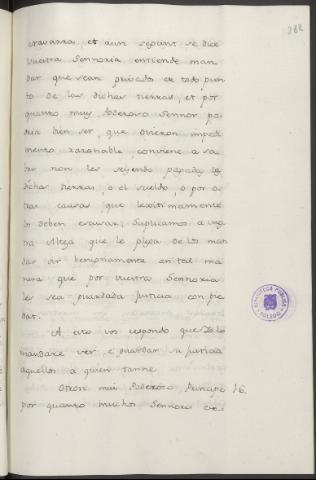 282
eravanza, et aun segunt se dice
Vuestra Sennoria entiende man
dar que sean privados en todo pun
to de las dichas tierras, et por
quanto muy Poderoso Sennor po
dria bien ser, que ovieron impedi
mento razonable, conviene a sa
ber non les seyendo pagada las
dichas tierras, o el sueldo, o por o
tras causas, que lexitimamente
los deben escusar, suplicamos a vues
tra Alteza que le plega de los man
dar oir benignamente en tal ma
nera que por vuestra Sennoria
les sea guardada Justicia con pie
dat.
A esto vos respondo que Yo lo
mandaré ver, e guardar su justicia
aquellos a quien tanne.
Otrosi mui Poderoso Principe 16.
por quanto muchos Sennores e
BIBLIOTECA PUBLICA
TOLEDO